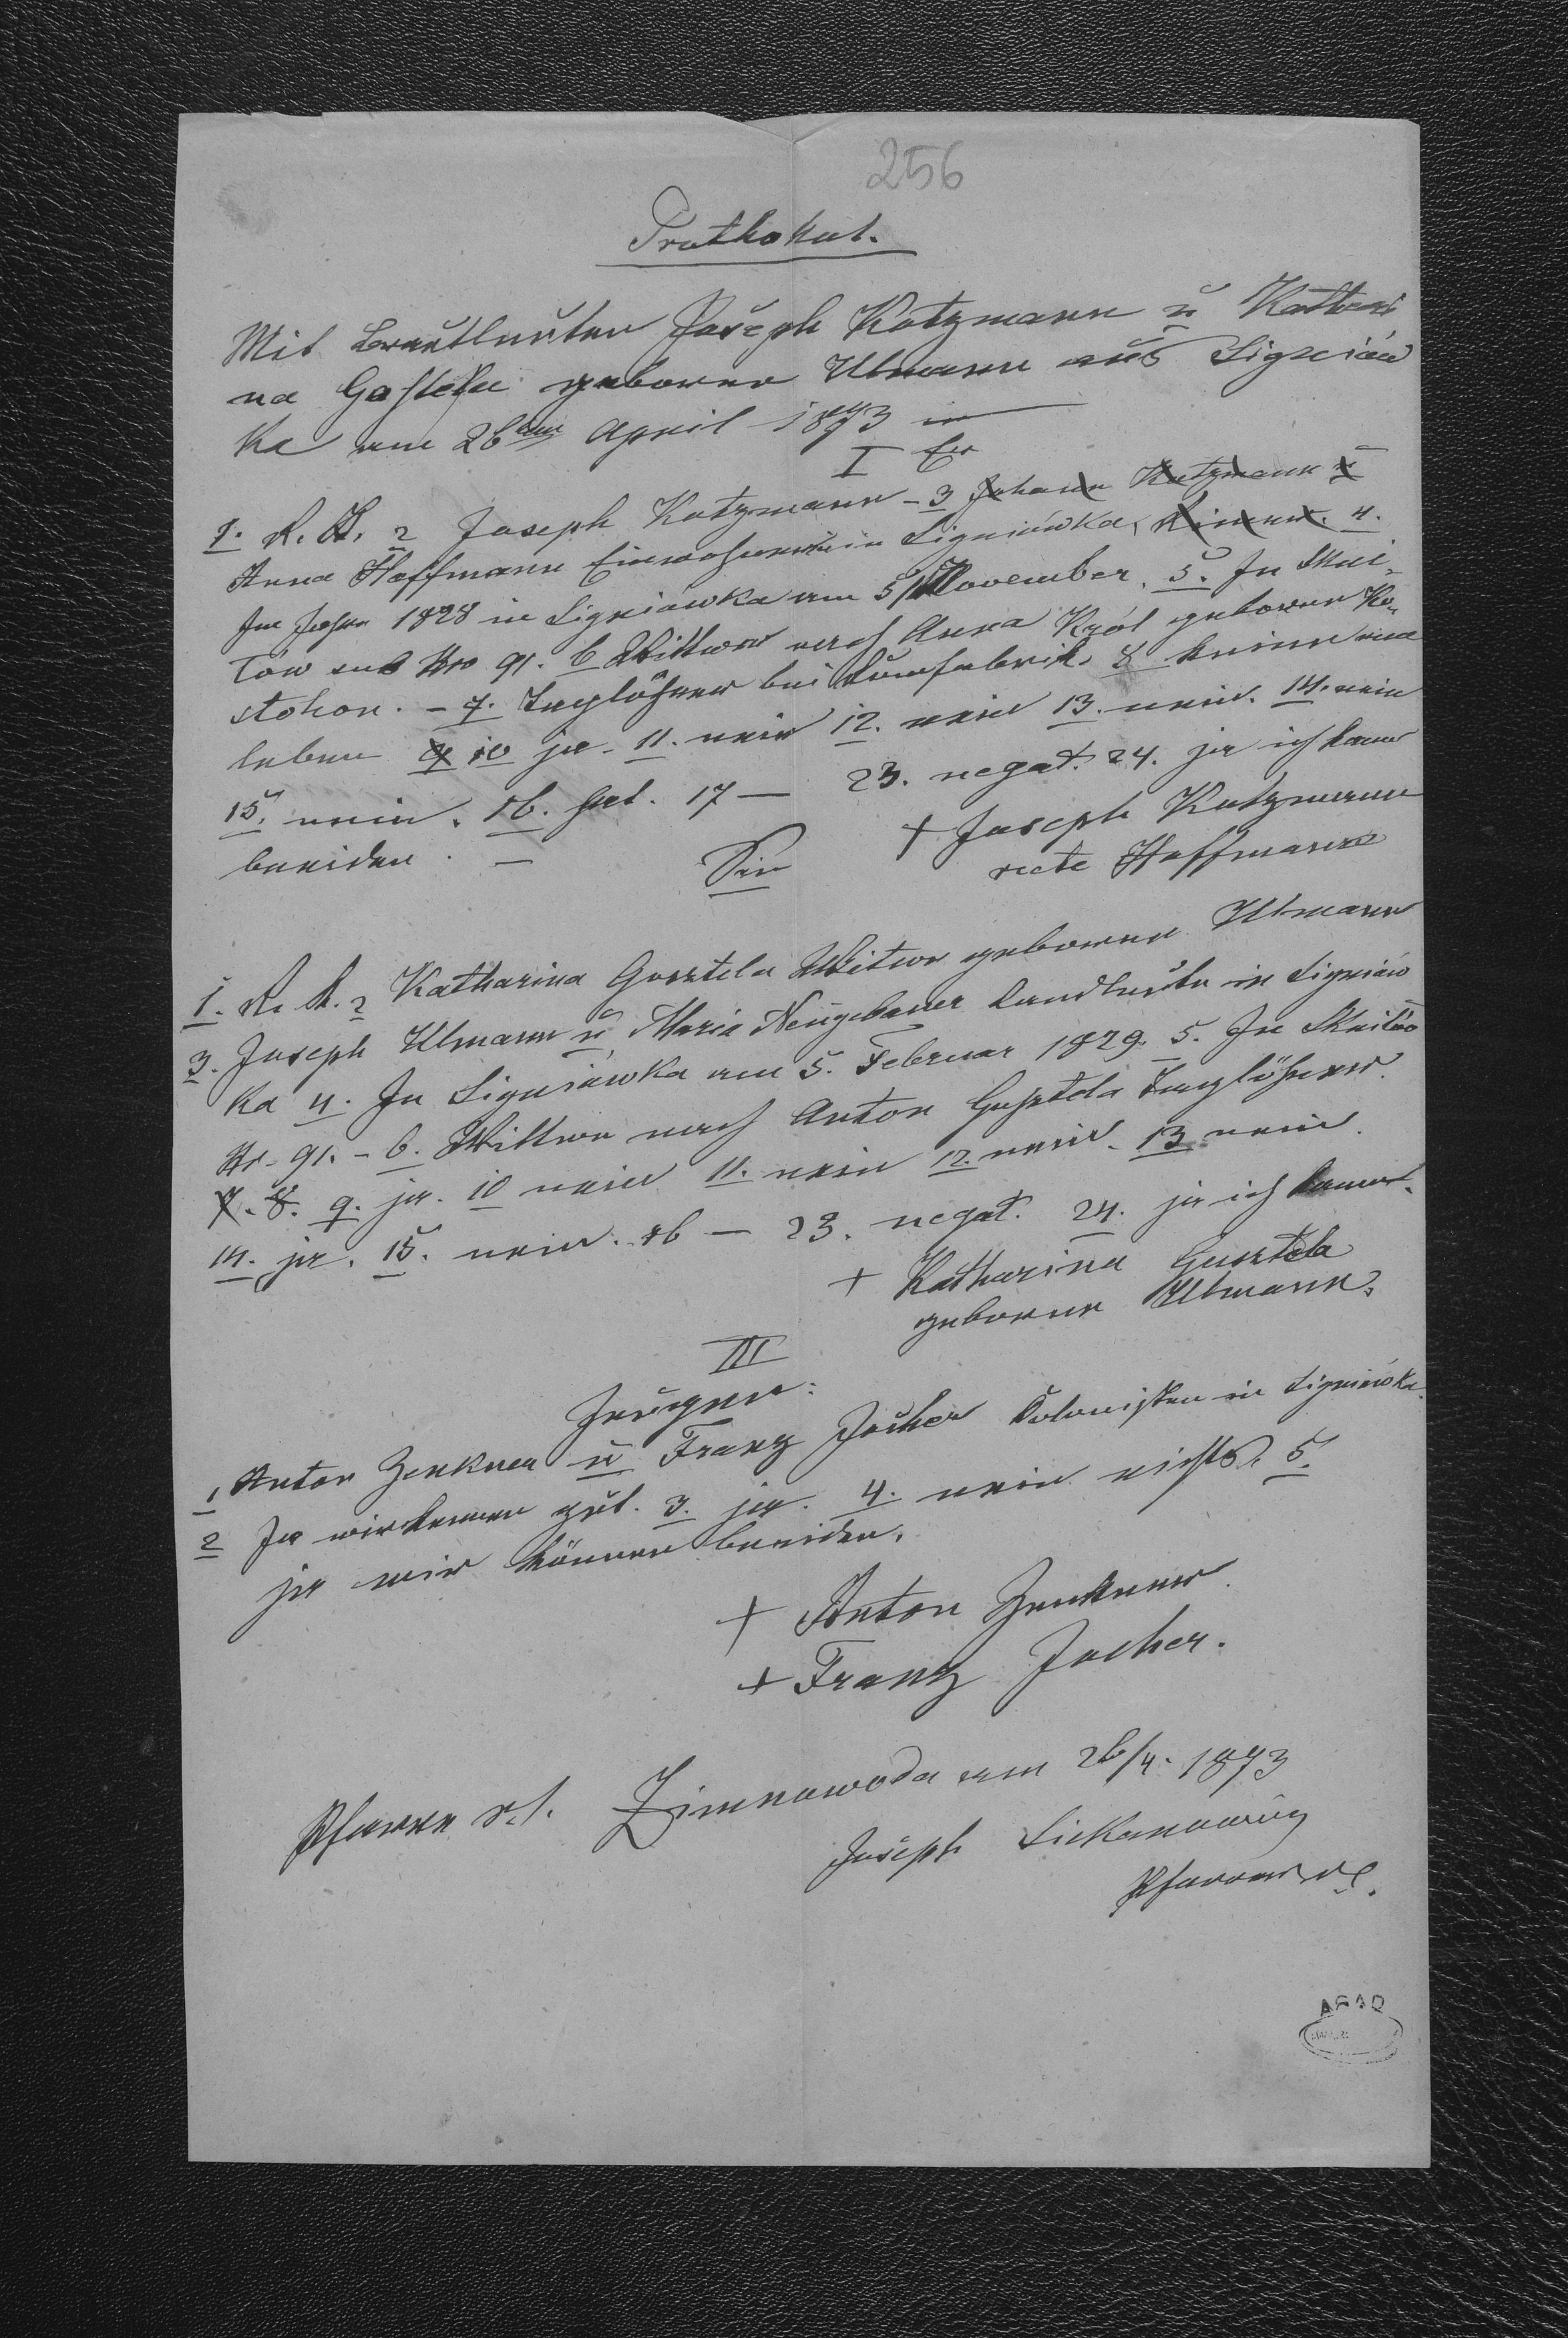 256
Prothokol.
Mit Brautleuten Joseph Kotzmann ŭ Kathari
na Gastela geborner Ulmann aus Signiów
ka am 26ten April 1873 in
I Er
1. R. L. 2 Joseph Kotzmann - 3 Johann Kutzmann ŭ
Anna Hoffmann Einwohner in Signiówka, 4.
Im Jahre 1828 in Signiówka am 5/November. 5. In Skni-
łów sub Nro 91. 6 Wittwer nach Anna Król geborner Ko-
stohon. - 7. Taglöhner bei 8 Keiner
leben 9 10 ja. 11. nein 12. nein 13. nein. 14. nein
15. nein. 16. gut. 17 — 23. negat. 24. ja ich kann
beeiden. —
+ Joseph Kotzmann
recte Hoffmann
Sie
1. R. L. 2 Katharina Gusztela Witwe geborner Ulmann
3. Joseph Ulmann ŭ Maria Neugebauer Landleute in Signiów
ka 4. In Signiówka am 5. Februar 1829. 5. In Skniłów
Nr. 91. - 6. Wittwe nach Anton Gusztela Taglöhner.
7. 8. 9. ja. 10 nein 11. nein 12. nein. 13 nein.
14. ja. 15. nein. 16 — 23. negat. 24. ja ich kann.
+ Katharina Gusztela
geborner Ulmann.
III
Zeugen:
1, Anton Zenkner ŭ Franz Jocher Kolonisten in Signiówka.
2 Ja wir kennen gut. 3. ja. 4. nein nichts. 5.
ja wir können beeiden.
+ Anton Zenkner.
+ Franz Jocher.
Pfarre r.l. Zimnawoda am 26/4. 1873
Joseph
Pfarrer r.l.
AGAD